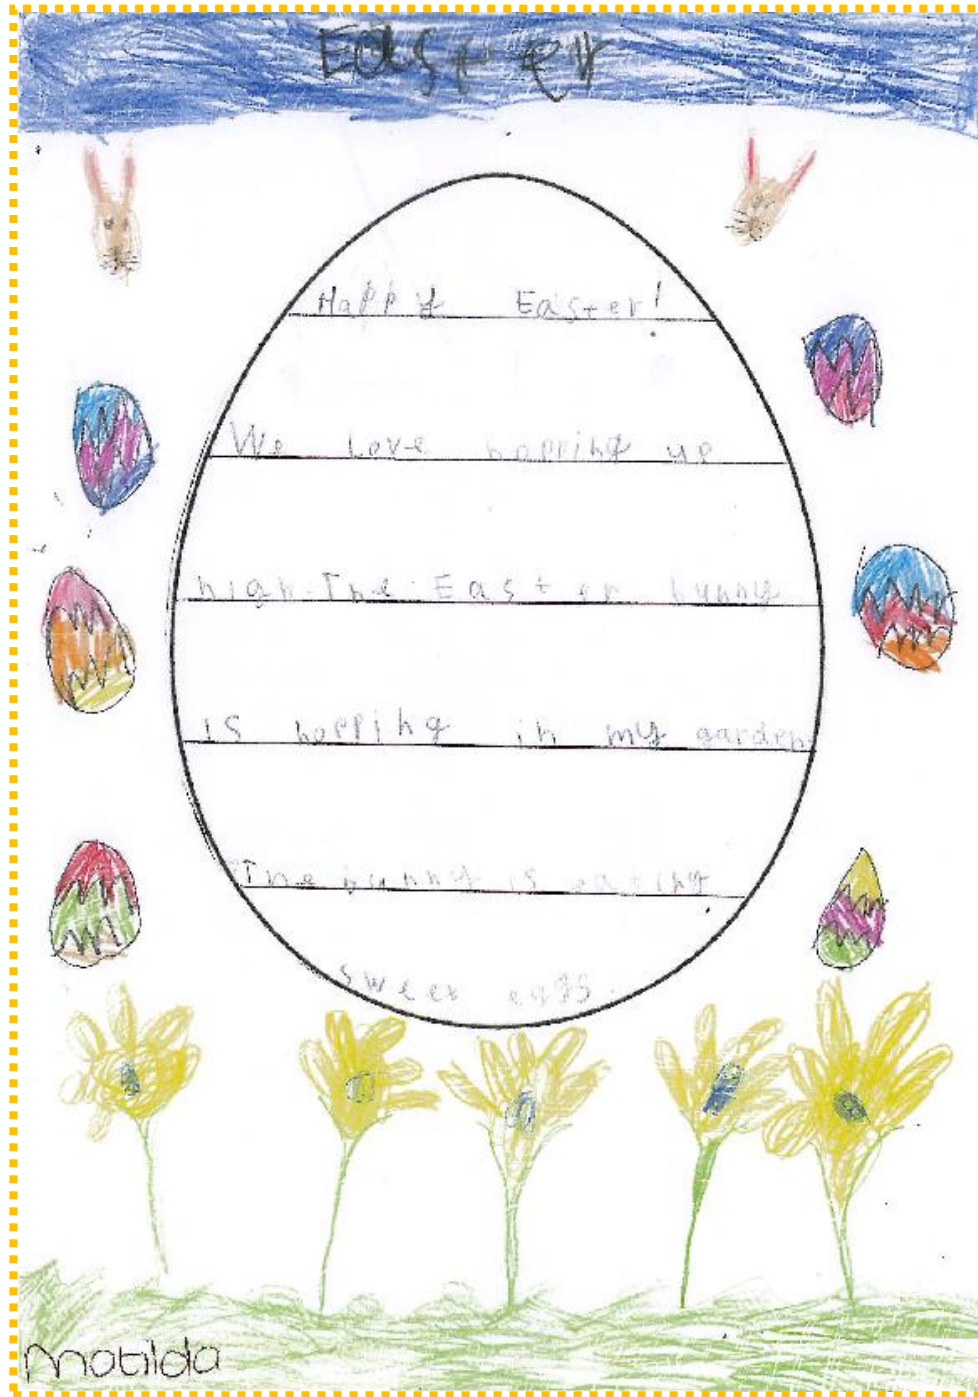 Easter
Happy Easter!
We love hopping up
high. The Easter bunny
is hopping in my garden
The bunny is eating
sweet eggs.
Matilda